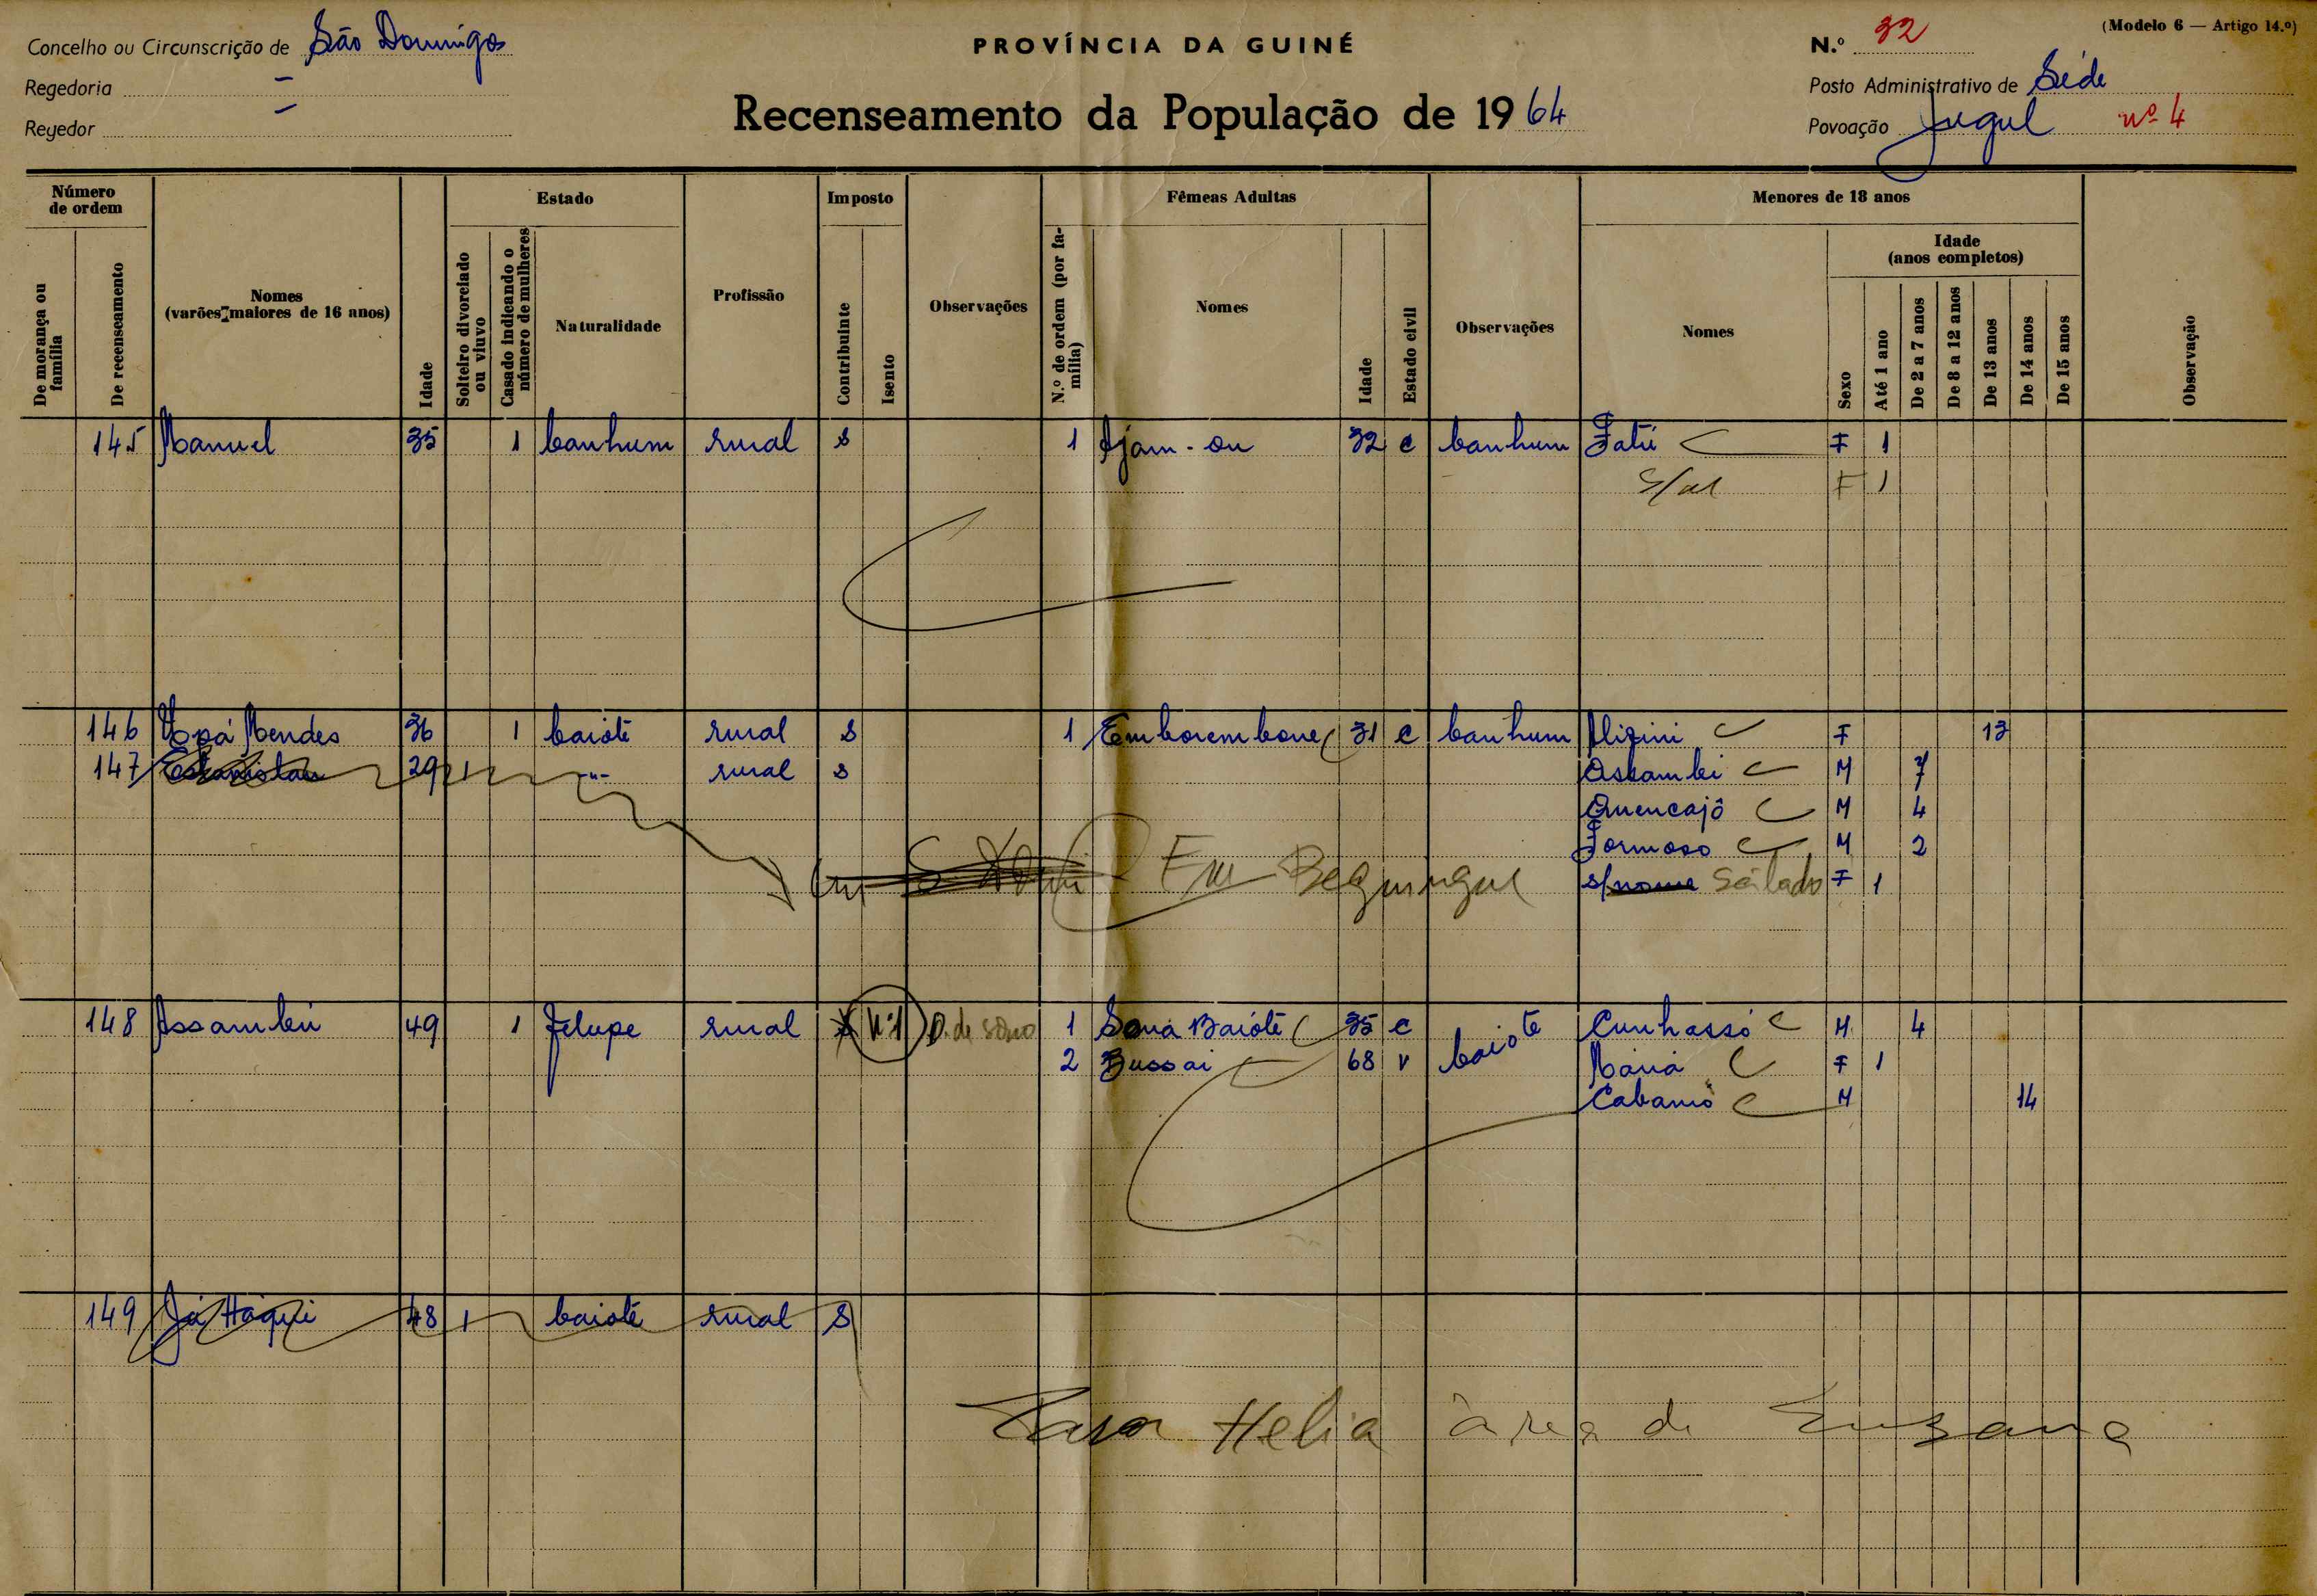 Concelho ou Circunscrição de São Domingos
PROVÍNCIA DA GUINÉ
N.º 32
(Modelo 6 — Artigo 14.º)
Regedoria —
Posto Administrativo de Séde
Regedor —
Recenseamento da População de 1964
Povoação Jugul nº 4
Número de ordem
Estado
Imposto
Fêmeas Adultas
Menores de 18 anos
De morança ou família
De recenseamento
Nomes (varões maiores de 16 anos)
Idade
Solteiro divorciado ou viuvo
Casado indicando o número de mulheres
Naturalidade
Profissão
Contribuinte
Isento
Observações
N.º de ordem (por família)
Nomes
Idade
Estado civil
Observações
Nomes
Sexo
Idade (anos completos)
Até 1 ano
De 2 a 7 anos
De 8 a 12 anos
De 13 anos
De 14 anos
De 15 anos
Observação
145 Manuel 35 1 banhum rural s 1 Ajam-ou 32 c banhum Fatú F 1
F 1
146 Mendes 36 1 baioté rural s 1 Emborembone 31 c banhum Alizini F 13
147 Estanislau 29 1 -"- rural s Assambei M 7
Quencajô M 4
Formoso M 2
Em S. Em Beguingue s/nome Sálado F 1
148 Assambú 49 1 Felupe rural s Nº1 D. de sono 1 Sona Baióte 35 c baiote Cunhassó M 4
2 Bussai 68 v Maria F 1
Cabanió M 14
149 Já Háqui 48 1 baioté rural s
Para Helia àrea de Suzana